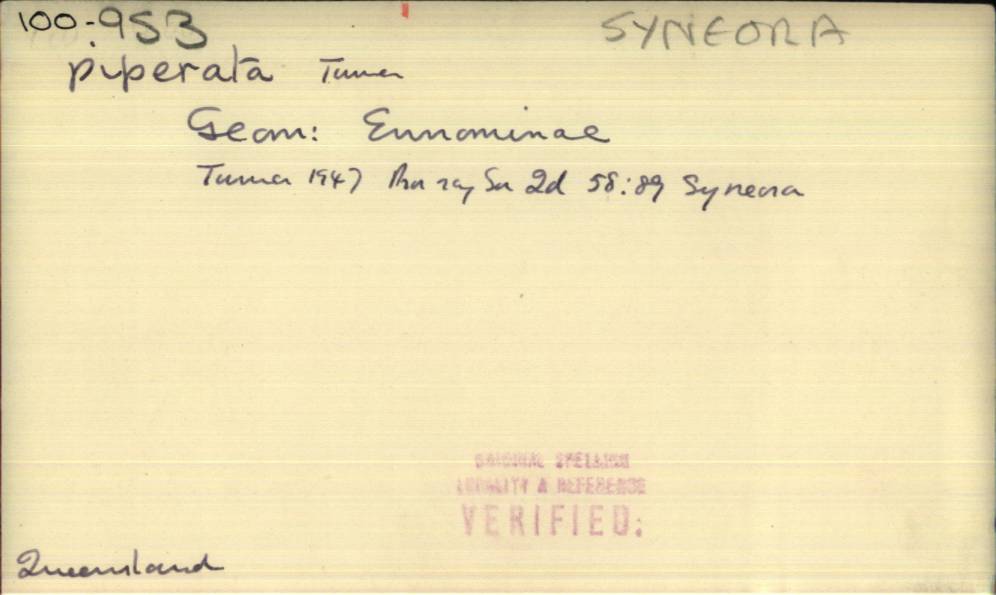 100-953 SYNEORA
piperata Turner
Geom: Ennominae
Turner 1947 Proc roy Soc Qd 58:89 Syneora
ORIGINAL SPELLING
LOCALITY & REFERENCE
VERIFIED.
Queensland